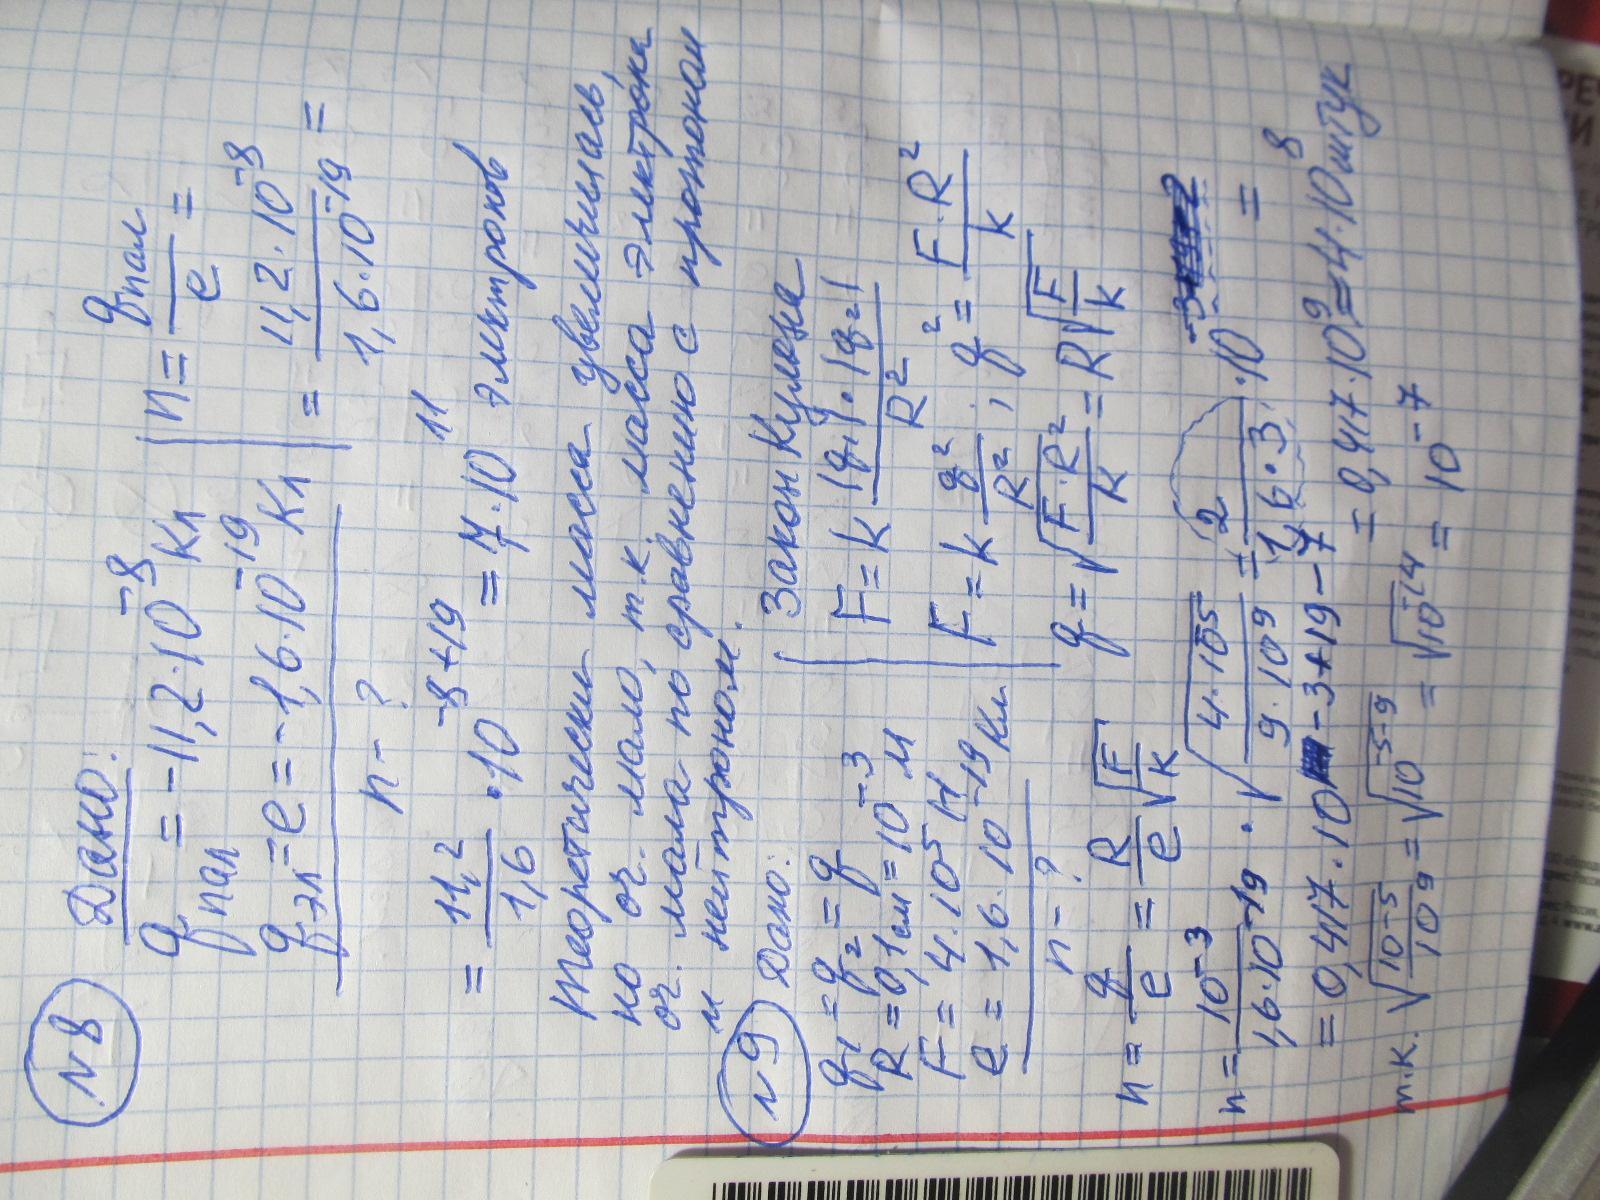 N8
Дано:
q пал = -11,2·10^-8 Кл
q эл = e = -1,6·10^-19 Кл
n - ?
n = q пал / e =
= 11,2·10^-8 / 1,6·10^-19 =
= 11,2 / 1,6 · 10^-8+19 = 7·10^11 электронов
Теоретически масса увеличилась,
но оч. мало, т.к. масса электрона
оч. мала по сравнению с протоном
и нейтроном.
N9 Дано:
q1 = q2 = q
R = 0,1 см = 10^-3 м
F = 4·10^-5 Н
e = 1,6·10^-19 Кл
n - ?
Закон Кулона
F = k |q1|·|q2| / R^2
F = k q^2 / R^2 ; q^2 = F·R^2 / k
q = √(F·R^2 / k) = R√(F / k)
n = q / e = R / e √(F / k)
n = 10^-3 / 1,6·10^-19 · √(4·10^-5 / 9·10^9) = 2 / 1,6·3 ·10
= 0,417·10^-3+19-7 = 0,417·10^9 = 4·10^8 штук
т.к. √(10^-5 / 10^9) = √10^-5-9 = √10^-14 = 10^-7